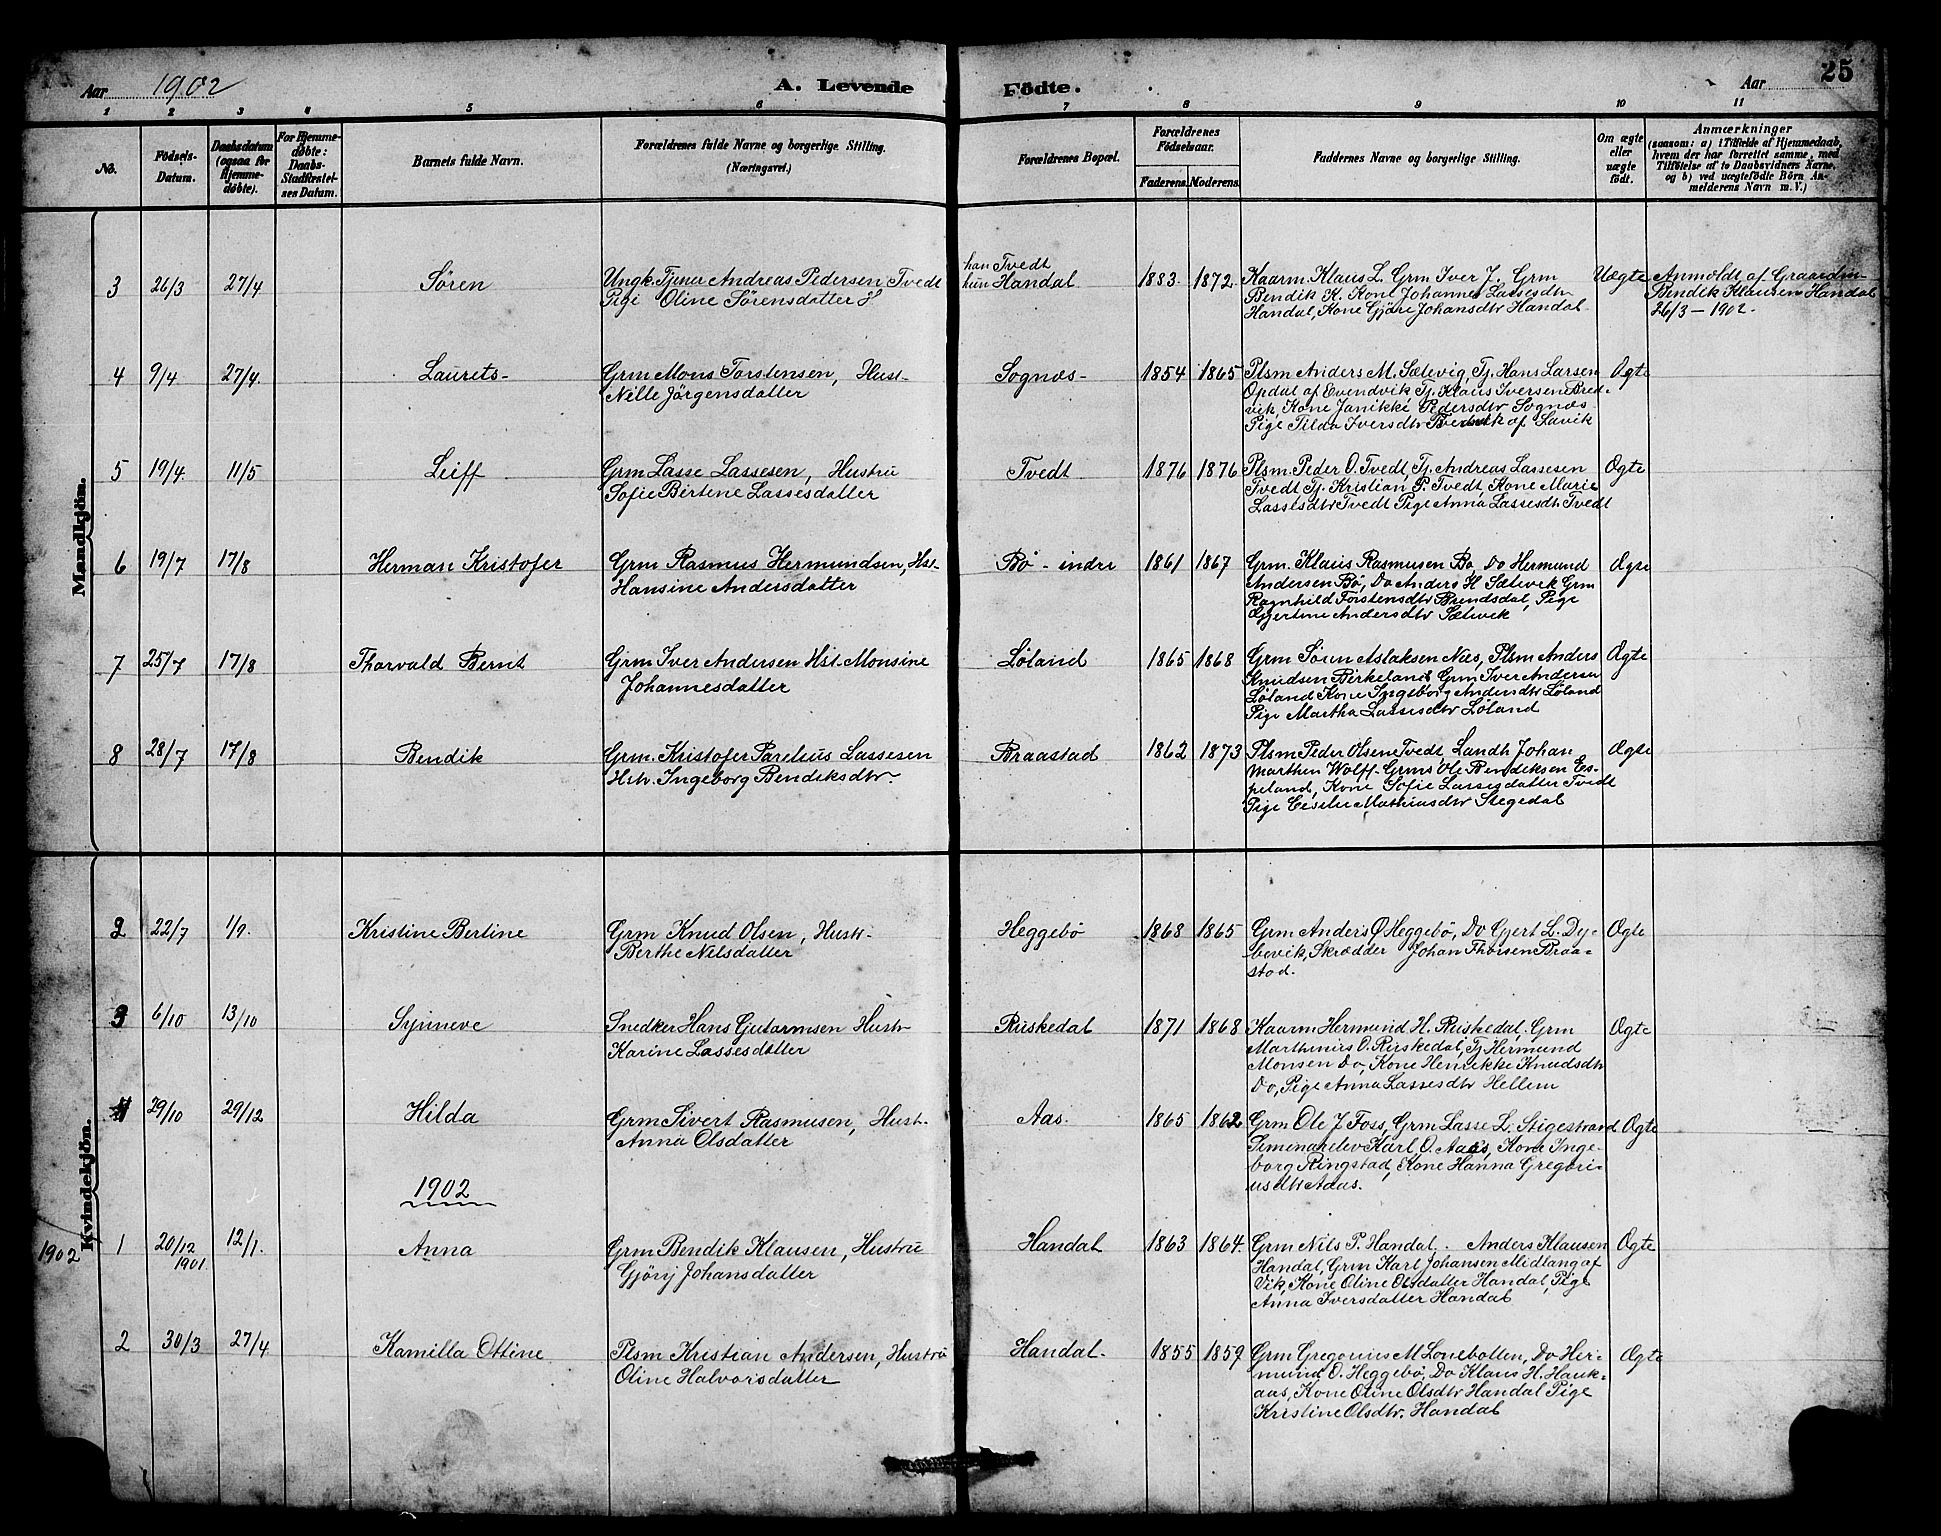 Aar 1902
A. Levende Fødte.
Aar
25
1 2 3 4 5 6 7 8 9 10 11
No.
Fødsels-Datum.
Daabsdatum (ogsaa for Hjemmedøbte).
For Hjemmedøbte: Daabs-Stadfæstelses Datum.
Barnets fulde Navn.
Forældrenes fulde Navne og borgerlige Stilling.
(Næringsvei.)
Forældrenes Bopæl.
Forældrenes Fødselsaar.
Faderens. Moderens.
Faddernes Navne og borgerlige Stilling.
Om ægte eller uægte født.
Anmærkninger
(saasom: a) i Tilfælde af Hjemmedaab,
hvem der har forrettet samme, med
Tilføielse af to Daabsvidners Navne,
og b) ved uægtefødte Børn An-
melderens Navn m. V.)
Mandkjön.
3 26/3 27/4 Søren
Ungk. Tjener Andreas Pedersen, Tvedt
Pige Oline Sörensdatter H
han Tvedt
hun Handal
1883. 1872.
Kaarm. Klaus L. Grm Iver J. Grm
Bendik K. Kone Johanne Lassesdtr
Handal, Kone Gjöre Johansdtr Handal
Uægte
Anmeldt af Graardm
Bendik Klausen Handal
26/3 – 1902.
4 9/4 27/4. Laurets-
Grm Mons Torstensen, Hust-
Nille Jörgensdatter
Sognæs-
1854 1865
Plsm Anders M. Sætevig, Tj. Hans Larsen
Opdal af Evendvik Tj. Klaus Iversen Bred-
vik, Kone Janikke Pedersdtr Sognæs
Pige Tilda Iversdtr Bredvik af Lavik
Ægte
5 19/4. 11/5 Leiff
Grm Lasse Lassesen, Hustru
Sofie Birtene Lassesdatter
Tvedt
1876 1876
Plsm. Peder O. Tvedt, Tj. Andreas Lassesen
Tvedt Tj. Kristian P. Tvedt Kone Marie
Lassesdtr Tvedt Pige Anna Lassesdtr Tvedt
Ægte
6 19/7 17/8 Herman Kristofer
Grm Rasmus Hermundsen, Hst-
Hansine Andersdatter
Bø - indre
1861 1867
Grm. Klaus Rasmusen Bø, Do Hermund
Andersen Bø, Do Anders H Sætevik Grm
Ragnhild Torstensdtr Brendsdal, Pige
Gjertine Andersdtr Sætevik
Ægte
7 25/7 17/8 Thorvald Bernt
Grm Iver Andersen Hst. Monsine
Johannesdatter
Løland
1865 1868
Grm Sören Aslaksen Næs, Plsm Anders
Knudsen Birkeland Grm Iver Andersen
Løland Kone Ingeborg Andersdtr Løland
Pige Martha Lassesdtr Løland
Ægte
8 28/7 17/8 Bendik
Grm. Kristofer Parelius Lassesen
Hstr. Ingeborg Bendiksdtr
Braastad
1862 1873
Plsm Peder Olsene Tvedt Landh Johan
Marthen Wolff. Grms Ole Bendiksen Es-
peland, Kone Sofie Lassesdatter Tvedt
Pige Ceselie Mathiasdtr Stegedal
Ægte
Kvindekjön.
2 22/7 1/9. Kristine Bertine
Grm Knud Olsen, Hustr-
Berthe Nilsdatter
Heggebö
1868 1865
Grm Anders O Heggebö, Do Gjert L. Dy-
bevik, Skrædder Johan Thorsen Braa-
stad.
Ægte
3 6/10 13/10 Synneve
Snedker Hans Gutormsen Hustr
Karine Lassesdatter
Ruskedal
1871 1868
Kaarm Hermund H. Ruskedal, Grm
Marthinus O. Ruskedal, Tj Hermund
Monsen Do, Kone Henrikke Knudsdtr
Do, Pige Anna Lassesdtr Hellem
Ægte
4 29/10 29/12 Hilda
Grm Sivert Rasmusen, Hust.
Anna Olsdatter
Aas.
1865 1862
Grm Ole J Foss, Grm Lasse L. Stigestrand
Semenarelev Karl O. Aas, Kone Inge-
borg Ringstad, Kone Hanna Gregori-
usdtr Aaas.
Ægte
1902
1902
1 20/12 1901. 12/1. Anna
Grm Bendik Klausen, Hustru
Gjörij Johansdatter
Handal
1863 1864.
Grm Nils P. Handal. Anders Klausen
Handal, Grm Karl Johansen Midlang af
Vik, Kone Oline Olsdatter Handal, Pige
Anna Iversdatter Handal
Ægte
2 30/3 27/4 Kamilla Ottine
Plsm Kristian Andersen, Hustru
Oline Halvorsdatter
Handal.
1855 1859
Grm Gregorius M Lonebotten, Do Her-
mund O. Heggebö, Do Klaus H. Hauk-
aas, Kone Oline Olsdtr Handal Pige
Kristine Olsdtr. Handal
Ægte